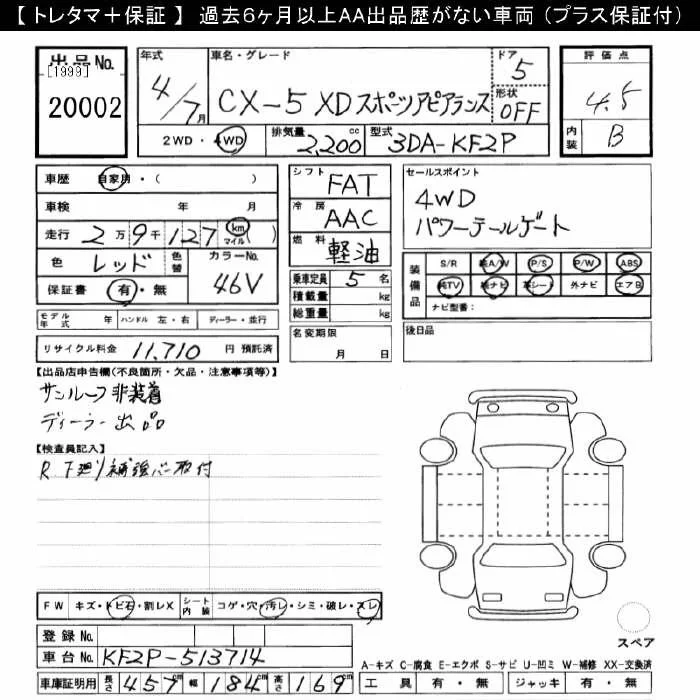 【 トレタマ＋保証 】 過去6ヶ月以上AA出品歴がない車両（プラス保証付）
出品No.
[1999]
20002
年式
4/7月
車名・グレード
CX-5 XDスポーツアピアランス
ドア
5
形状
OFF
2WD・4WD
排気量
2,200cc
型式
3DA-KF2P
評価点
4.5
内装
B
車歴 自家用・（ ）
車検 年 月
走行 2万9千127 km マイル( )
色 レッド 色替 カラーNo. 46V
保証書 有・無
モデル年式 年 ハンドル 左・右 ディーラー・並行
リサイクル料金 11,710 円 預託済
シフト FAT
冷房 AAC
燃料 軽油
乗車定員 5 名
積載量 kg
総重量 kg
名変期限
月 日
セールスポイント
4WD
パワーテールゲート
装備品
S/R 純A/W P/S P/W ABS
純TV 純ナビ 革シート 外ナビ エアB
ナビ型番：
後日品
【出品店申告欄(不良箇所・欠品・注意事項等)】
サンルーフ非装着
ディーラー出品
【検査員記入】
R下廻り補強芯取付
FW キズ・トビ石・割レX シート内装 コゲ・穴・汚レ・シミ・破レ・スレ
登録No.
車台No. KF2P-513714
車庫証明用 長さ 457cm 幅 184cm 高さ 169cm
スペア
A-キズ C-腐食 E-エクボ S-サビ U-凹ミ W-補修 XX-交換済
工具 有・無 ジャッキ 有・無